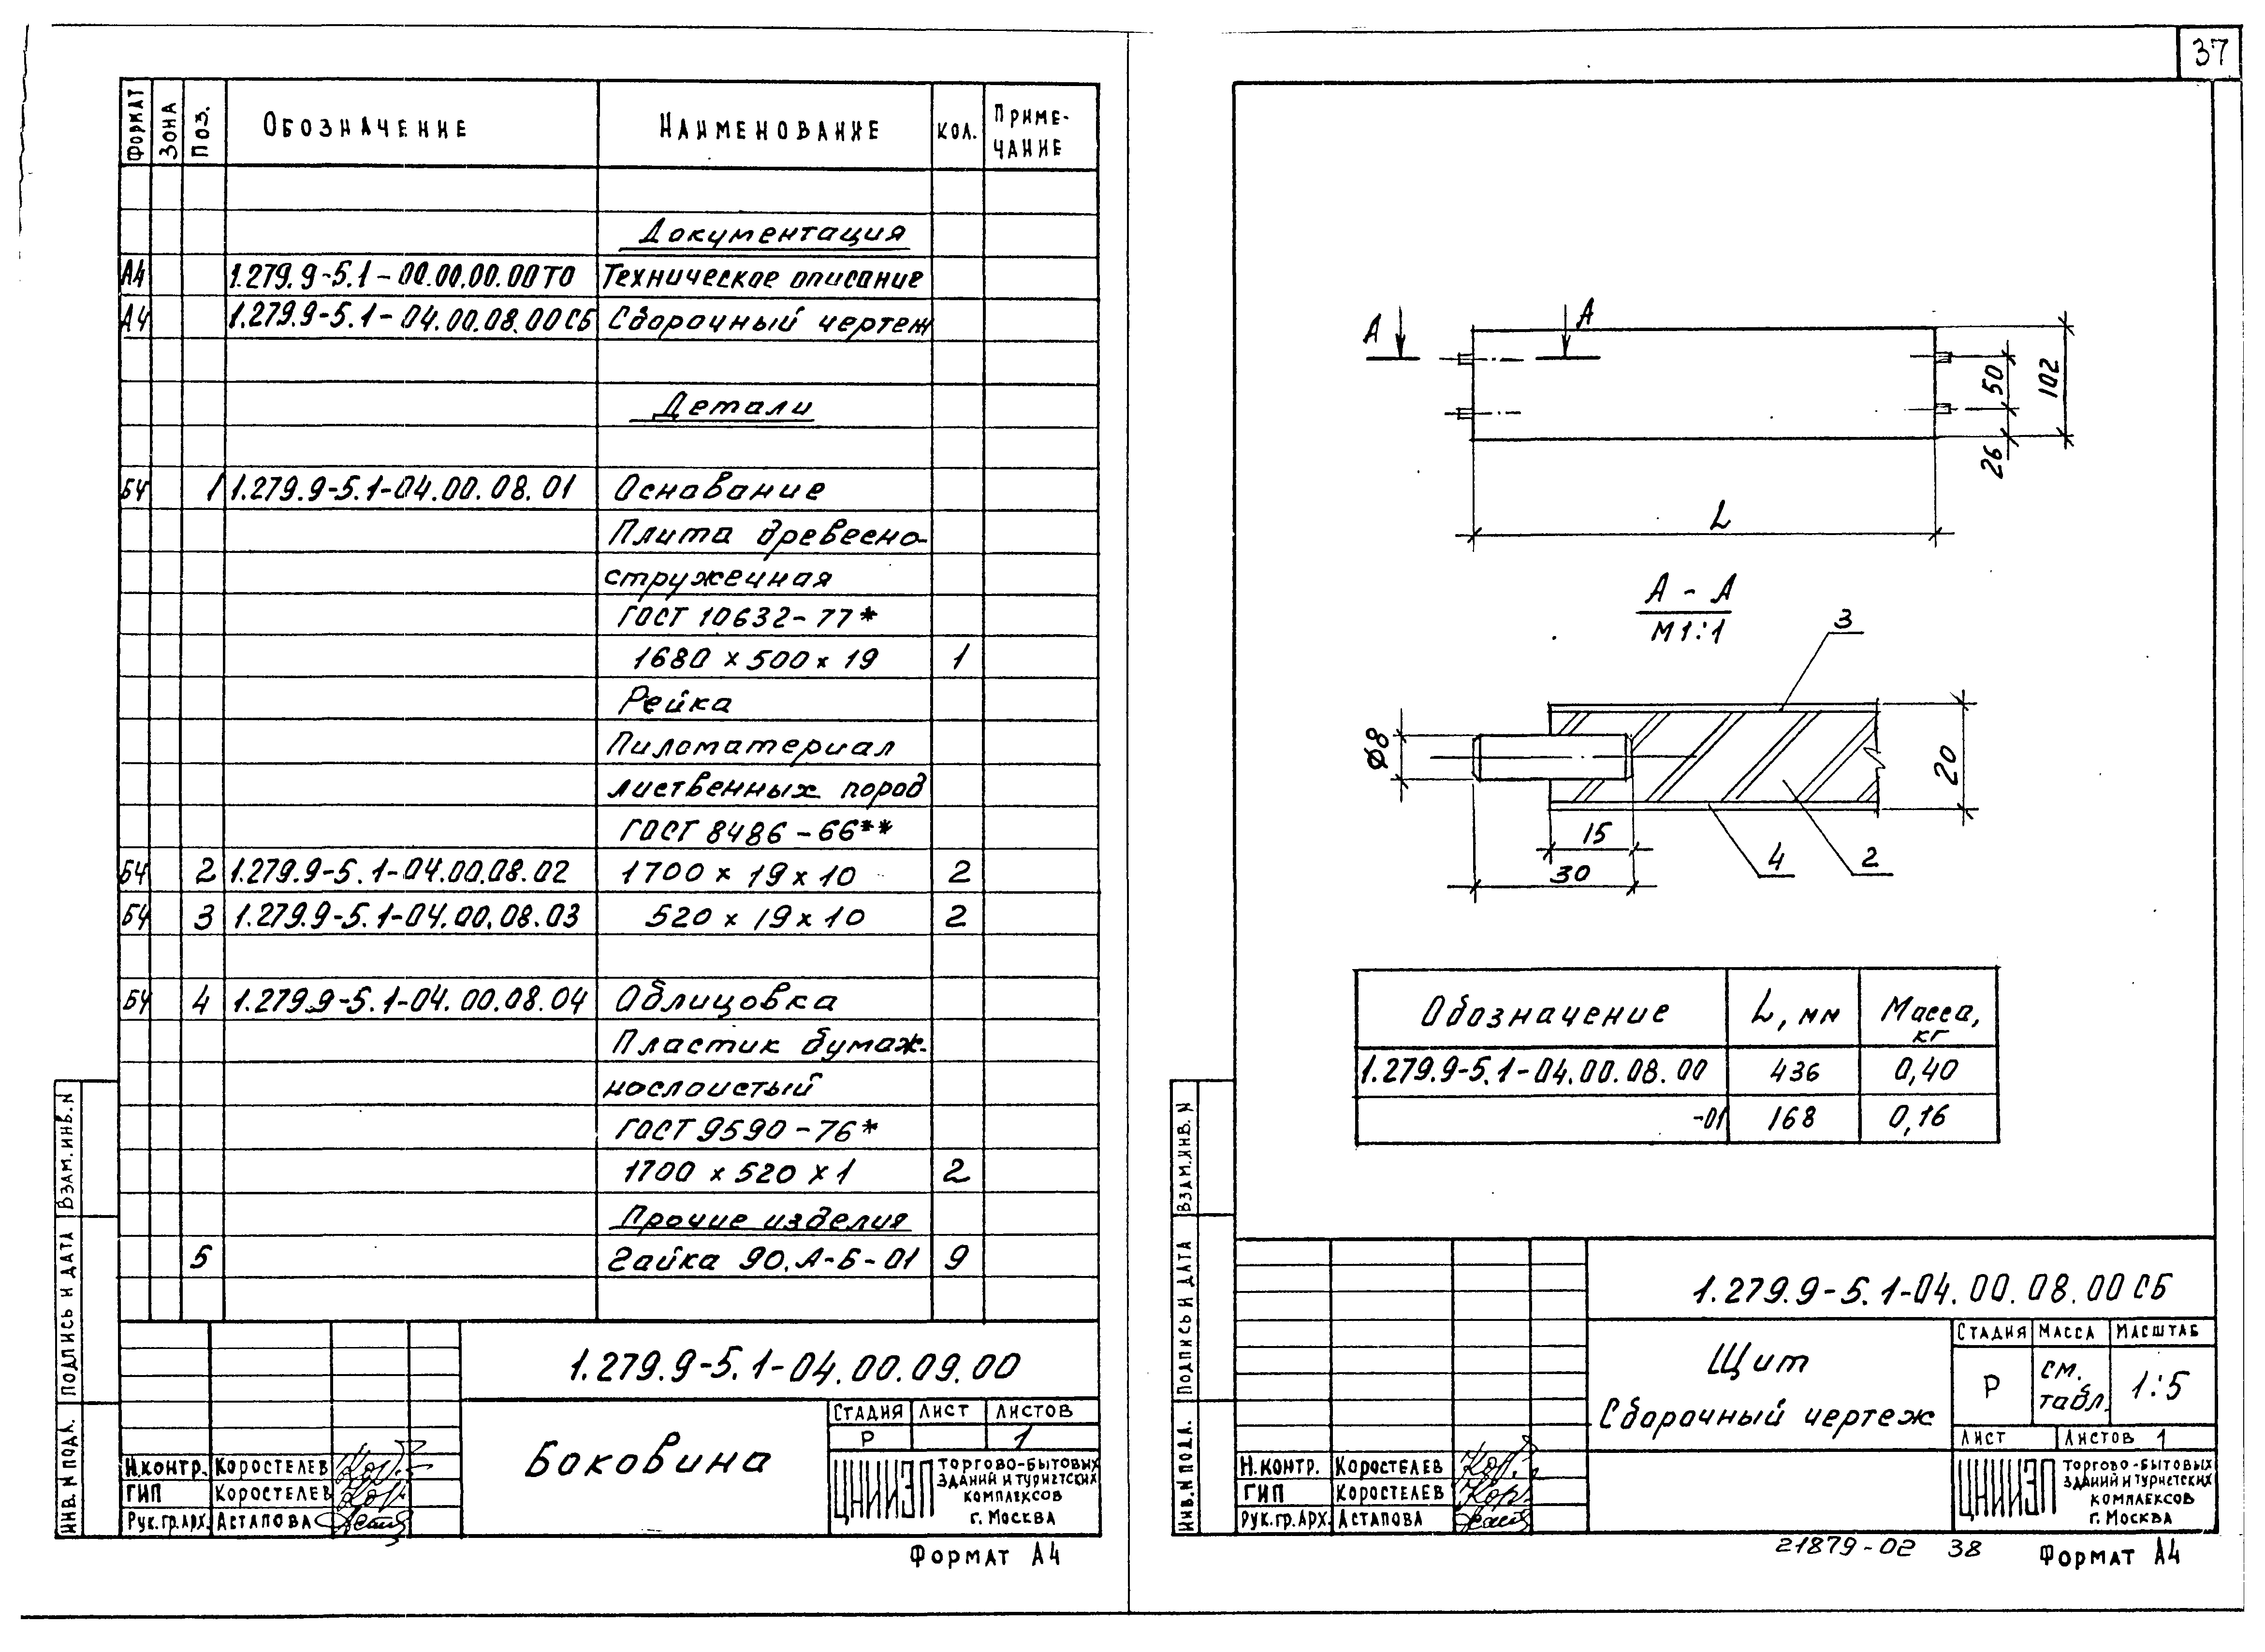 37
ФОРМАТ ЗОНА ПОЗ. ОБОЗНАЧЕНИЕ НАИМЕНОВАНИЕ КОЛ. ПРИМЕ-
ЧАНИЕ
Документация
А4 1.279.9-5.1-00.00.00.00ТО Техническое описание
А4 1.279.9-5.1-04.00.08.00СБ Сборочный чертеж
Детали
БЧ 1 1.279.9-5.1-04.00.08.01 Основание
Плита древесно-
стружечная
ГОСТ 10632-77*
1680 х 500 х 19 1
Рейка
Пиломатериал
лиственных пород
ГОСТ 8486-66**
БЧ 2 1.279.9-5.1-04.00.08.02 1700 х 19 х 10 2
БЧ 3 1.279.9-5.1-04.00.08.03 520 х 19 х 10 2
БЧ 4 1.279.9-5.1-04.00.08.04 Облицовка
Пластик бумаж-
нослоистый
ГОСТ 9590-76*
1700 х 520 х 1 2
Прочие изделия
5 Гайка 90.А-Б-01 9
1.279.9-5.1-04.00.09.00
Боковина
СТАДИЯ ЛИСТ ЛИСТОВ
Р 1
Н.КОНТР. КОРОСТЕЛЕВ
ГИП КОРОСТЕЛЕВ
РУК.ГР.АРХ. АСТАПОВА
ЦНИИЭП
ТОРГОВО-БЫТОВЫХ
ЗДАНИЙ И ТУРИСТСКИХ
КОМПЛЕКСОВ
Г. МОСКВА
ФОРМАТ А4
ВЗАМ.ИНВ.N
ПОДПИСЬ И ДАТА
ИНВ.N ПОДЛ.
А А
50
102
26
L
А - А
М 1:1
3
ø8
20
15
30
4 2
Обозначение L, мм Масса,
кг
1.279.9-5.1-04.00.08.00 436 0,40
-01 168 0,16
1.279.9-5.1-04.00.08.00СБ
Щит
Сборочный чертеж
СТАДИЯ МАССА МАСШТАБ
Р см.
табл. 1:5
ЛИСТ ЛИСТОВ 1
Н.КОНТР. КОРОСТЕЛЕВ
ГИП КОРОСТЕЛЕВ
РУК.ГР.АРХ АСТАПОВА
ЦНИИЭП
ТОРГОВО-БЫТОВЫХ
ЗДАНИЙ И ТУРИСТСКИХ
КОМПЛЕКСОВ
Г. МОСКВА
ВЗАМ.ИНВ.N
ПОДПИСЬ И ДАТА
ИНВ.N ПОДЛ.
21879-02 38 ФОРМАТ А4